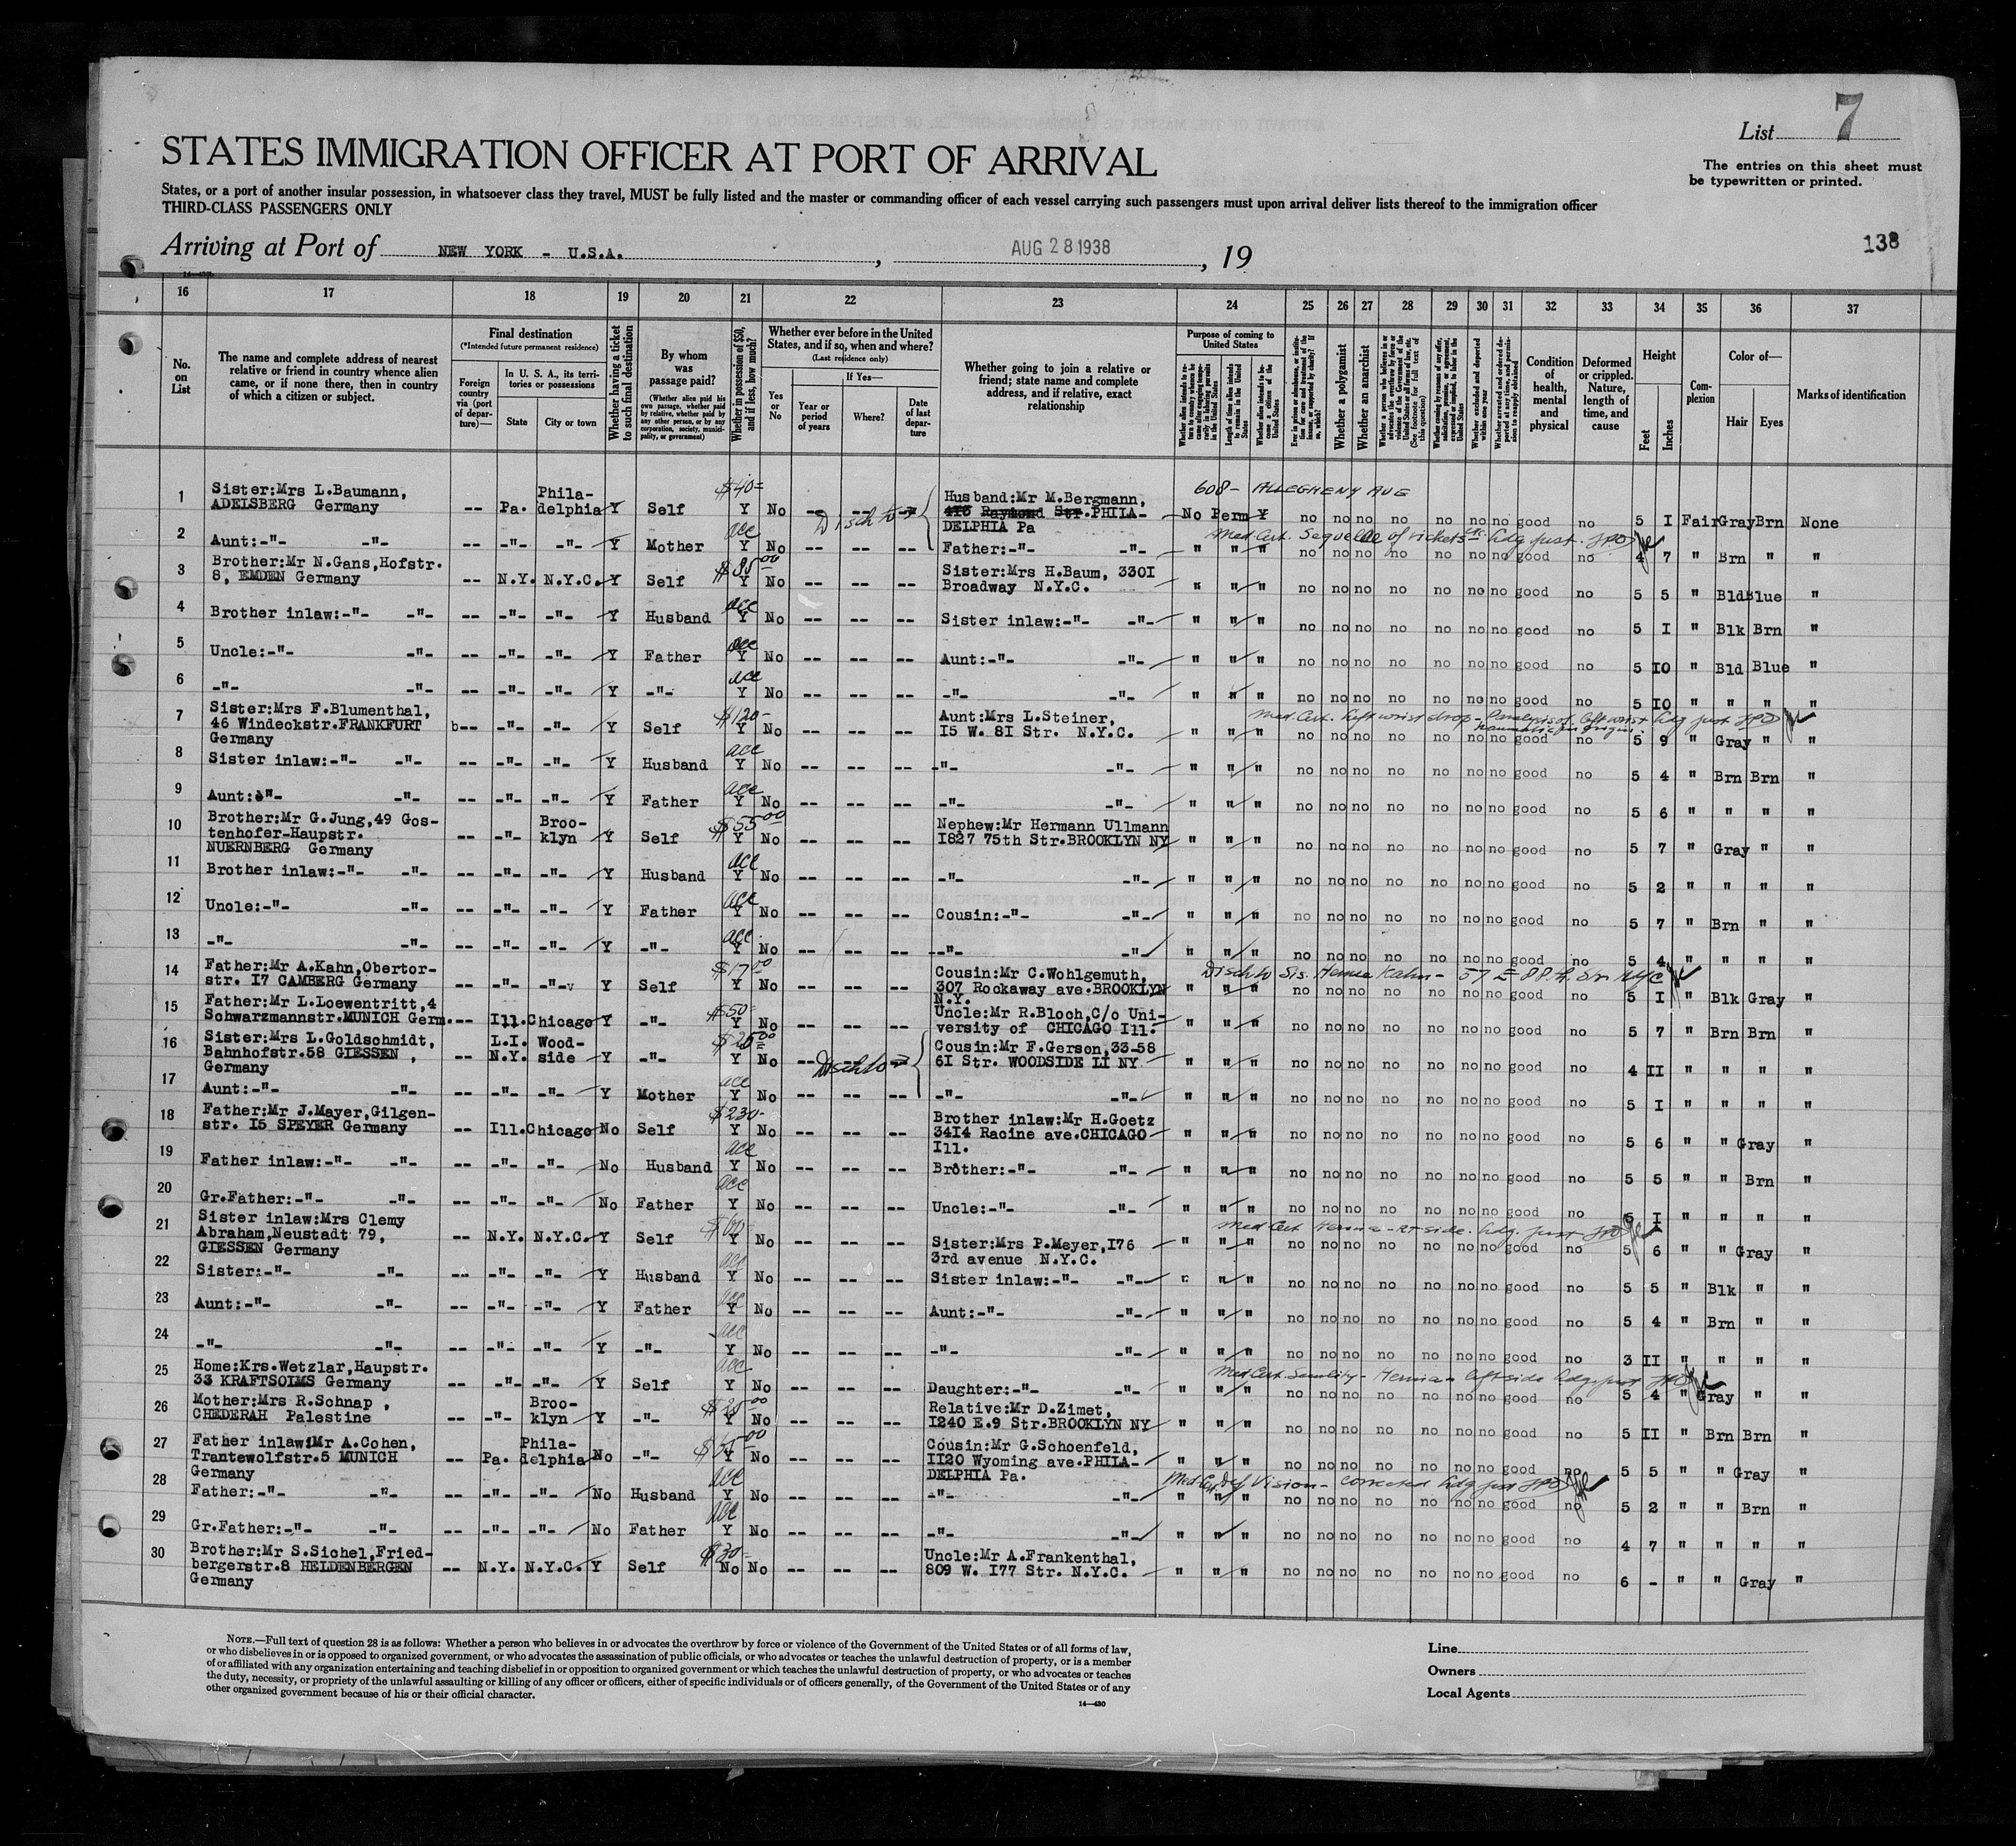 List 7
STATES IMMIGRATION OFFICER AT PORT OF ARRIVAL
The entries on this sheet must
be typewritten or printed.
States, or a port of another insular possession, in whatsoever class they travel, MUST be fully listed and the master or commanding officer of each vessel carrying such passengers must upon arrival deliver lists thereof to the immigration officer
THIRD-CLASS PASSENGERS ONLY
Arriving at Port of NEW YORK - U.S.A. , AUG 28 1938 , 19
138
16 17 18 19 20 21 22 23 24 25 26 27 28 29 30 31 32 33 34 35 36 37
No. on List
The name and complete address of nearest relative or friend in country whence alien came, or if none there, then in country of which a citizen or subject.
Final destination
(*Intended future permanent residence)
Foreign country via (port of departure)—
In U. S. A., its territories or possessions
State
City or town
Whether having a ticket to such final destination
By whom was passage paid?
(Whether alien paid his own passage, whether paid by relative, whether paid by any other person, or by any corporation, society, municipality, or government)
Whether in possession of $50, and if less, how much?
Whether ever before in the United States, and if so, when and where?
(Last residence only)
Yes or No
If Yes—
Year or period of years
Where?
Date of last departure
Whether going to join a relative or friend; state name and complete address, and if relative, exact relationship
Purpose of coming to United States
Length of time alien intends to remain in the United States
Whether alien intends to become a citizen of the United States
Whether a polygamist
Whether an anarchist
Condition of health, mental and physical
Deformed or crippled. Nature, length of time, and cause
Height
Feet
Inches
Complexion
Color of—
Hair
Eyes
Marks of identification
608 - ALLEGHENY AUG
1 Sister:Mrs L.Baumann, ADELSBERG Germany -- Pa. Philadelphia Y Self $40= Y No -- -- -- Husband:Mr M.Bergmann, 413 Raymond Str.PHILADELPHIA Pa No Perm Y no no no no no no no good no 5 I Fair Gray Brn None
Disch to
Med Cert. Sequellae of rickets
2 Aunt:-"- -"- -- -"- -"- Y Mother acc Y No -- -- -- Father:-"- -"- " " " no no no no no no no good no 4 7 " Brn " "
3 Brother:Mr N.Gans,Hofstr. 8, EMDEN Germany -- N.Y. N.Y.C. Y Self $85.00 Y No -- -- -- Sister:Mrs H.Baum, 330I Broadway N.Y.C. " " " no no no no no no no good no 5 5 " Bld Blue "
4 Brother inlaw:-"- -"- -- -"- -"- Y Husband acc Y No -- -- -- Sister inlaw:-"- -"- " " " no no no no no no no good no 5 I " Blk Brn "
5 Uncle:-"- -"- -- -"- -"- Y Father acc Y No -- -- -- Aunt:-"- -"- " " " no no no no no no no good no 5 IO " Bld Blue "
6 -"- -"- -- -"- -"- Y -"- acc Y No -- -- -- -"- -"- " " " no no no no no no no good no 5 IO " " " "
Med. Cert. Left wrist drop - Paralysis of left wrist traumatic in origin.
7 Sister:Mrs F.Blumenthal, 46 Windeckstr.FRANKFURT Germany b-- -"- -"- Y Self $120- Y No -- -- -- Aunt:Mrs L.Steiner, I5 W. 8I Str. N.Y.C. " " " no no no no no no no good no 5 9 " Gray " "
8 Sister inlaw:-"- -"- -- -"- -"- Y Husband acc Y No -- -- -- -"- -"- " " " no no no no no no no good no 5 4 " Brn Brn "
9 Aunt:-"- -"- -- -"- -"- Y Father acc Y No -- -- -- -"- -"- " " " no no no no no no no good no 5 6 " " " "
10 Brother:Mr G.Jung,49 Gostenhofer-Haupstr. NUERNBERG Germany -- -"- Brooklyn Y Self $55.00 Y No -- -- -- Nephew:Mr Hermann Ullmann I827 75th Str.BROOKLYN NY " " " no no no no no no no good no 5 7 " Gray " "
11 Brother inlaw:-"- -"- -- -"- -"- Y Husband acc Y No -- -- -- -"- -"- " " " no no no no no no no good no 5 2 " " " "
12 Uncle:-"- -"- -- -"- -"- Y Father acc Y No -- -- -- Cousin:-"- -"- " " " no no no no no no no good no 5 7 " Brn " "
13 -"- -"- -- -"- -"- Y -"- acc Y No -- -- -- -"- -"- " " " no no no no no no no good no 5 4 " " " "
Disch to Sis. Kahn - 57 E 88th Str NYC
14 Father:Mr A.Kahn,Obertorstr. I7 CAMBERG Germany -- -"- -"- Y Self $17.00 Y No -- -- -- Cousin:Mr C.Wohlgemuth, 307 Rockaway ave.BROOKLYN N.Y. " " " no no no no no no no good no 5 I " Blk Gray "
15 Father:Mr L.Loewentritt,4 Schwarzmannstr.MUNICH Germ. -- Ill. Chicago Y -"- $50- Y No -- -- -- Uncle:Mr R.Bloch,C/o University of CHICAGO Ill. " " " no no no no no no no good no 5 7 " Brn Brn "
16 Sister:Mrs L.Goldschmidt, Bahnhofstr.58 GIESSEN , Germany -- L.I. N.Y. Woodside Y -"- $25.00 Y No -- Disch to -- Cousin:Mr F.Gerson,33-58 6I Str. WOODSIDE LI NY " " " no no no no no no no good no 4 II " " " "
17 Aunt:-"- -"- -- -"- -"- Y Mother acc Y No -- -- -- -"- -"- " " " no no no no no no no good no 5 I " " " "
18 Father:Mr J.Mayer,Gilgenstr. I5 SPEYER Germany -- Ill. Chicago No Self $230- Y No -- -- -- Brother inlaw:Mr H.Goetz 34I4 Racine ave.CHICAGO Ill. " " " no no no no no no no good no 5 6 " " Gray "
19 Father inlaw:-"- -"- -- -"- -"- No Husband acc Y No -- -- -- Brother:-"- -"- " " " no no no no no no no good no 5 5 " " Brn "
20 Gr.Father:-"- -"- -- -"- -"- No Father acc Y No -- -- -- Uncle:-"- -"- " " " no no no no no no no good no 5 I " " " "
Med Cert Hernia - rt side.
21 Sister inlaw:Mrs Clemy Abraham,Neustadt 79, GIESSEN Germany -- N.Y. N.Y.C. Y Self $60- Y No -- -- -- Sister:Mrs P.Meyer,I76 3rd avenue N.Y.C. " " " no no no no no no no good no 5 6 " " Gray "
22 Sister:-"- -"- -- -"- -"- Y Husband acc Y No -- -- -- Sister inlaw:-"- -"- " " " no no no no no no no good no 5 5 " Blk " "
23 Aunt:-"- -"- -- -"- -"- Y Father acc Y No -- -- -- Aunt:-"- -"- " " " no no no no no no no good no 5 4 " Brn " "
24 -"- -"- -- -"- -"- Y -"- acc Y No -- -- -- -"- -"- " " " no no no no no no no good no 3 II " " " "
Med Cert. Senility - Hernia left side
25 Home:Krs.Wetzlar,Haupstr. 33 KRAFTSOLMS Germany -- -"- -"- Y Self acc Y No -- -- -- Daughter:-"- -"- " " " no no no no no no no good no 5 4 " Gray " "
26 Mother:Mrs R.Schnap , CHEDERAH Palestine -- -"- Brooklyn Y -"- $25.00 Y No -- -- -- Relative:Mr D.Zimet, I240 E.9 Str.BROOKLYN NY " " " no no no no no no no good no 5 II " Brn Brn "
27 Father inlaw:Mr A.Cohen, Trantewolfstr.5 MUNICH Germany -- Pa. Philadelphia No -"- Y No -- -- -- Cousin:Mr G.Schoenfeld, II20 Wyoming ave.PHILADELPHIA Pa. " " " no no no no no no no good no 5 5 " " Gray "
Med Cert Def Vision - corrected
28 Father:-"- -"- -- -"- -"- No Husband acc Y No -- -- -- -"- -"- " " " no no no no no no no good no 5 2 " " Brn "
29 Gr.Father:-"- -"- -- -"- -"- No Father acc Y No -- -- -- -"- -"- " " " no no no no no no no good no 4 7 " " " "
30 Brother:Mr S.Sichel,Friedbergerstr.8 HELDENBERGEN Germany -- N.Y. N.Y.C. Y Self $30= No No -- -- -- Uncle:Mr A.Frankenthal, 809 W. I77 Str. N.Y.C. " " " no no no no no no no good no 6 - " " Gray "
NOTE.—Full text of question 28 is as follows: Whether a person who believes in or advocates the overthrow by force or violence of the Government of the United States or of all forms of law,
or who disbelieves in or is opposed to organized government, or who advocates the assassination of public officials, or who advocates or teaches the unlawful destruction of property, or is a member
of or affiliated with any organization entertaining and teaching disbelief in or opposition to organized government or which teaches the unlawful destruction of property, or who advocates or teaches
the duty, necessity, or propriety of the unlawful assaulting or killing of any officer or officers, either of specific individuals or of officers generally, of the Government of the United States or of any
other organized government because of his or their official character.
14—430
Line
Owners
Local Agents